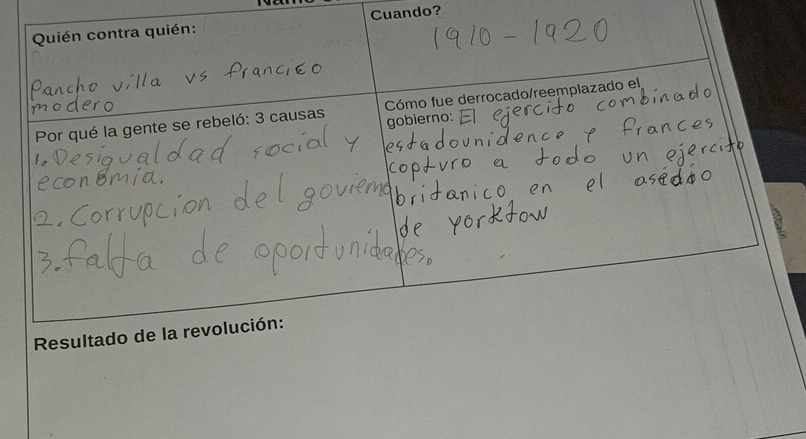 Quién contra quién:
Pancho villa vs francisco
modero
Cuando?
1910 - 1920
Por qué la gente se rebeló: 3 causas
1. Desigualdad social y
economia.
2. Corrupcion del goviemo
3. falta de oportunidades.
Cómo fue derrocado/reemplazado el
gobierno: El ejercito combinado
estadounidence y frances
copturo a todo un ejercito
britanico en el asedio
de yorktow
Resultado de la revolución: